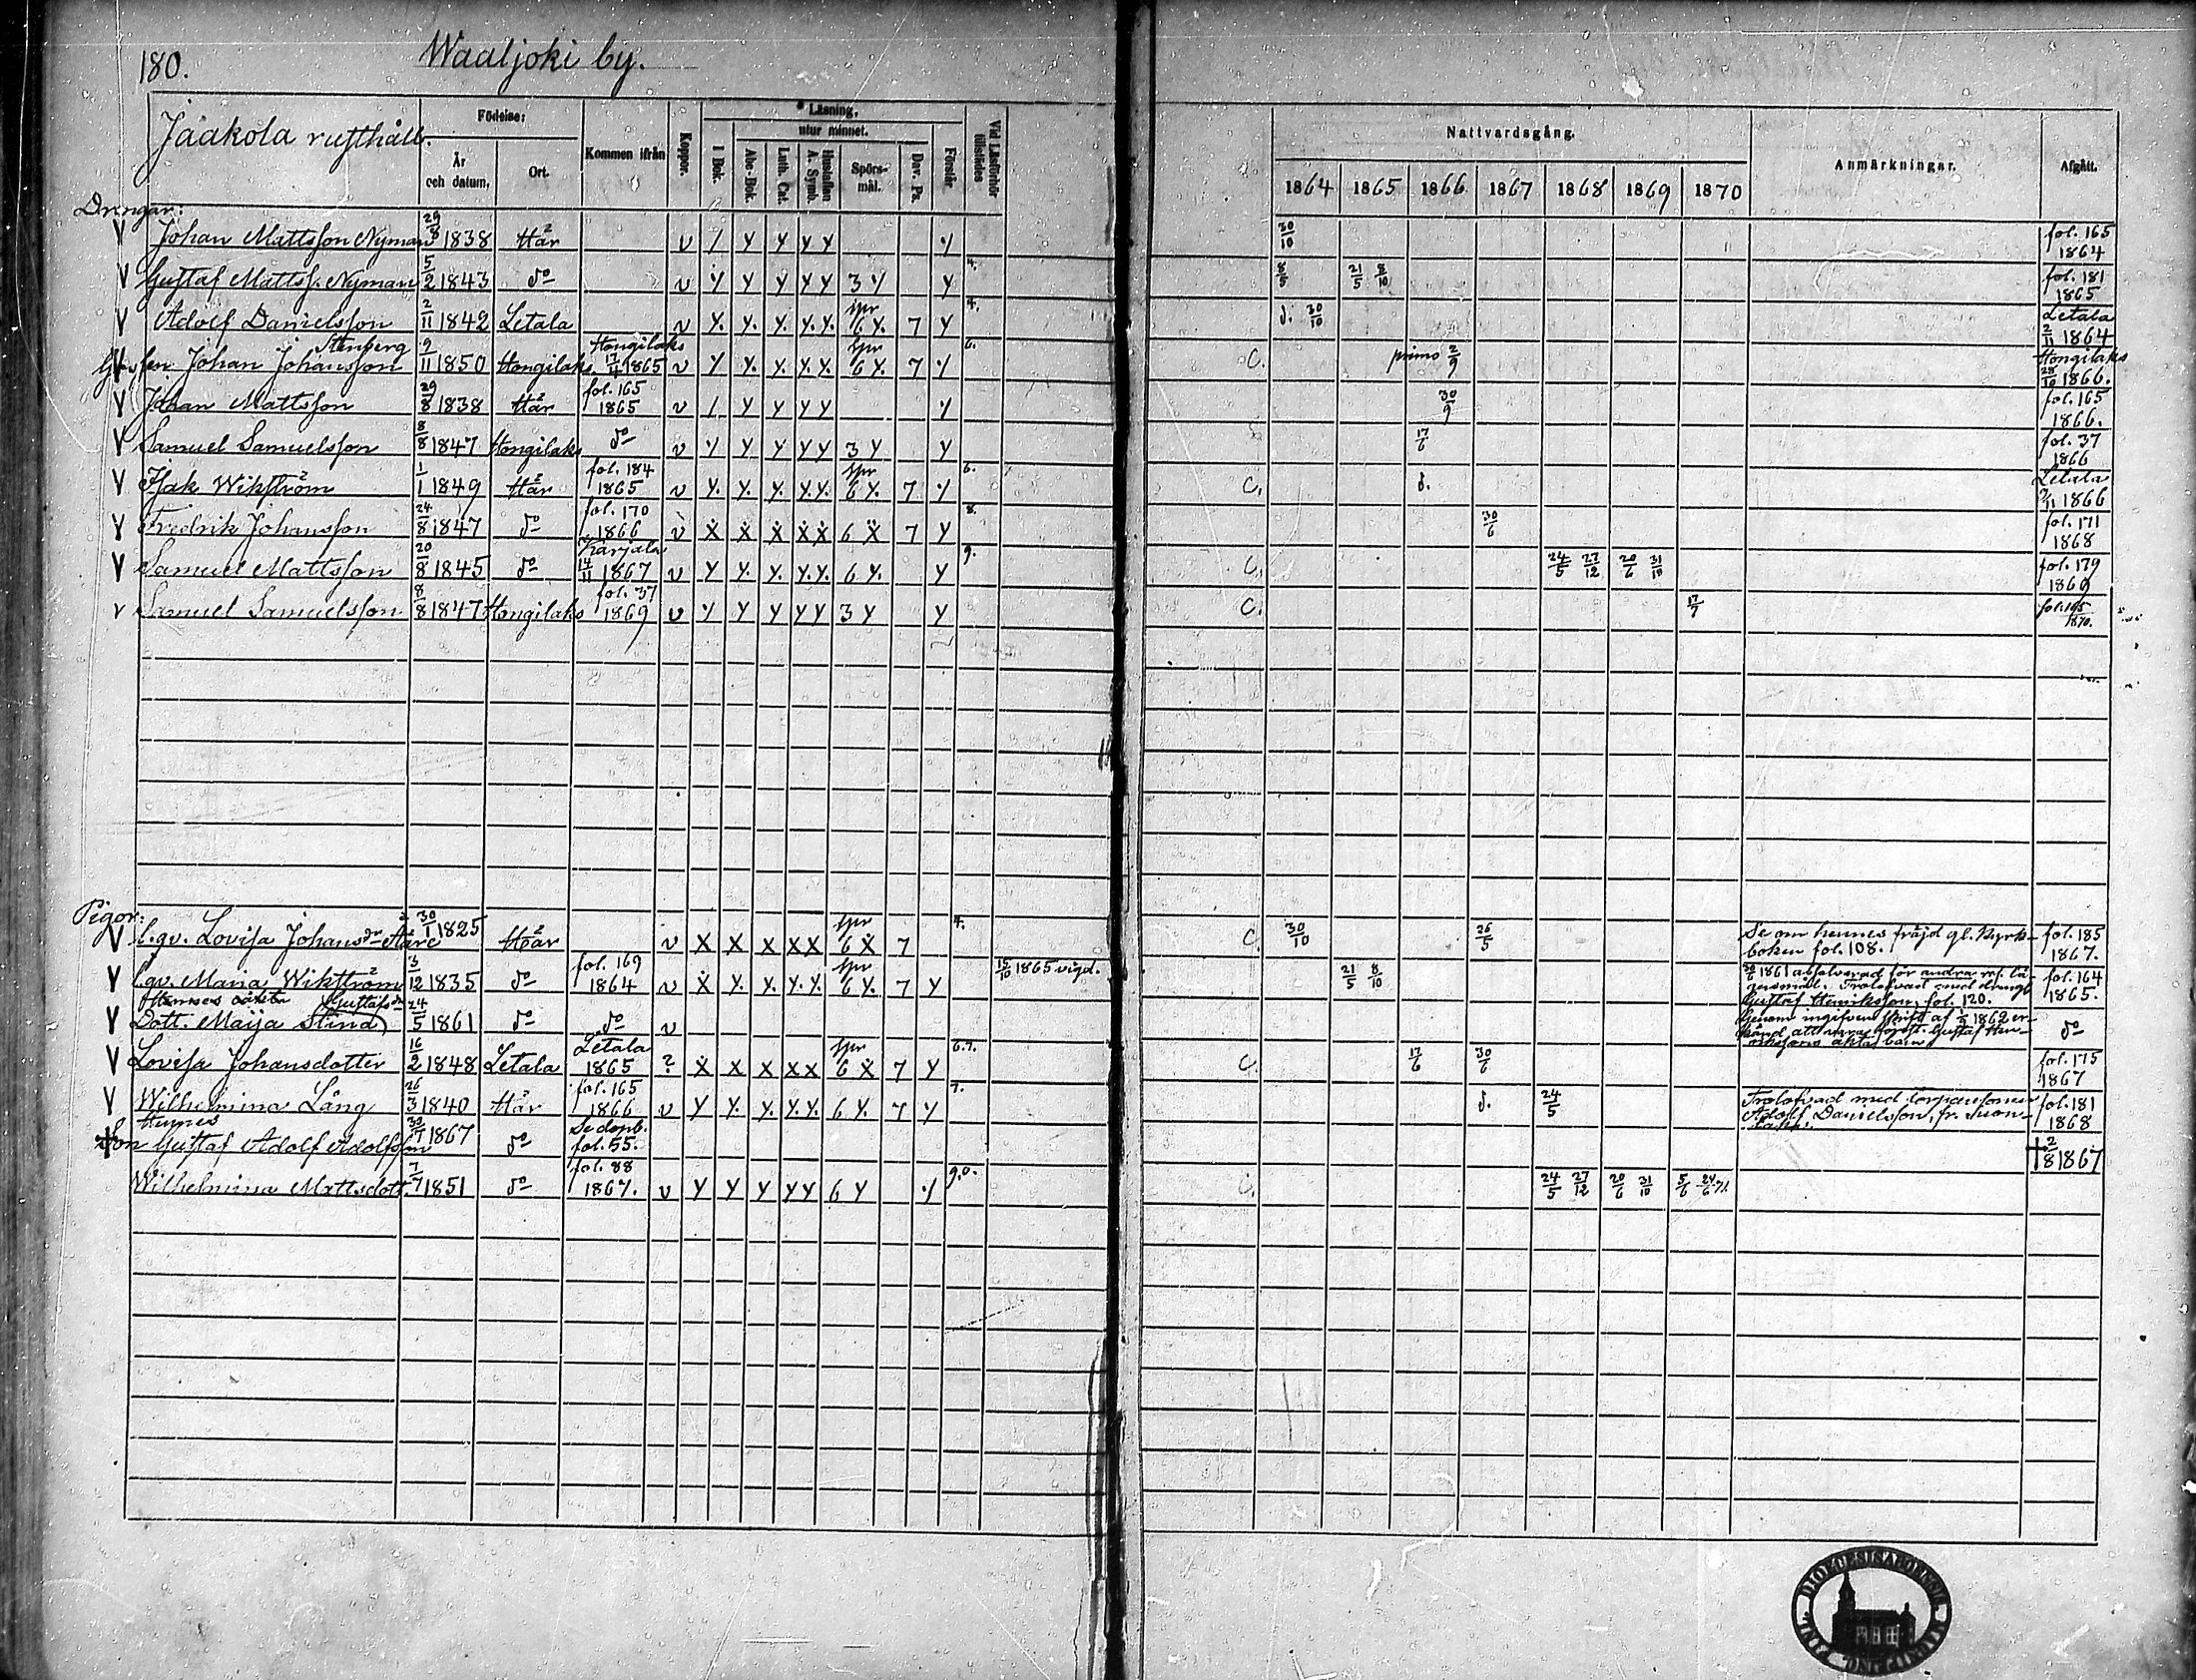 180. Waaljoki by.
Jaakola rusthåll.
Födelse:
År och datum.
Ort.
Kommen ifrån
Koppor.
Läsning,
utur minnet.
I Bok.
Abc-Bok.
Luth. Cat.
Hustaflan A. Symb.
Spörs-mål.
Dav. Ps.
Förstår
Vid Läsförhör tillstädes
Nattvardsgång.
1864 1865 1866 1867 1868 1869 1870
Anmärkningar.
Afgått.
Drengar:
V Johan Mattsson Nyman 29/8 1838 Här v / y y y y y 30/10 fol. 165 1864
V Gustaf Mattss. Nyman 5/2 1843 do v y y y y y 3 y y 4. 8/5 21/5 8/10 fol. 181 1865
V Adolf Danielsson 2/11 1842 Letala v y. y. y. y. y. spr 6 y. 7 y 4. d. 30/10 Letala 2/11 1864
V Johan Johansson Stenberg 9/11 1850 Hongilaks Hongilaks 17/4 1865 v y y. y. y. y. spr 6 y. 7 y 6. C. primo 2/9 Hongilaks 28/10 1866.
V Johan Mattsson 29/8 1838 Här fol. 165 1865 v / y y y y y 30/9 fol. 165 1866.
V Samuel Samuelsson 8/8 1847 Hongilaks do v y y y y y 3 y y 17/6 fol. 37 1866
V Isak Wikström 1/1 1849 Här fol. 184 1865 v y. y. y. y. y. spr 6 y. 7 y 6. C. d. Letala 2/11 1866
V Fredrik Johansson 24/8 1847 do fol. 170 1866 v x x x x x 6 x 7 y 8. 30/6 fol. 171 1868
V Samuel Mattsson 20/8 1845 do Karjala 14/11 1867 v y y. y. y. y. 6 y. y 9. C. 24/5 27/12 20/6 31/10 fol. 179 1869
v Samuel Samuelsson 8/8 1847 Hongilaks fol. 37 1869 v y y y y y 3 y y C. 17/7 fol. 195 1870.
Pigor:
V Lovisa Johansdr 30/1 1825 Här v x x x x x spr 6 x 7 4. C. 30/10 26/5 Se om hennes fräjd gl. Kyrk-
boken fol. 108. fol. 185 1867.
V Maria Wikström 3/12 1835 do fol. 169 1864 v x y. y. y. y. spr 6 y. 7 y 15/10 1865 vigd. 21/5 8/10 1861 absolverad för andra
Trolofvad med dreng
Gustaf Henriksson, fol. 120. fol. 164 1865.
Hennes oäkta
V Dott. Maija Stina Gustafsdr 24/5 1861 do do v Genom ingifven skrift af 1862 er-
känd att vara Gustaf Hen-
rikssons äkta barn do
V Lovisa Johansdotter 16/2 1848 Letala Letala 1865 ? x x x x x spr 6 x 7 y 6.7. C. 17/6 30/6 fol. 175 1867
V Wilhelmina Lång 26/3 1840 Här fol. 165 1866 v y y. y. y. y. 6 y. 7 y 7. d. 24/5 Trolofvad med torparesonen
Adolf Danielsson, fr. fol. 181 1868
Hennes
Son Gustaf Adolf Adolfsson 1867 do Se dopb. fol. 55. † 2/8 1867
Wilhelmina Mattsdott. 7/7 1851 do fol. 88 1867. v y y y y y 6 y y 9.0. C. 24/5 27/12 20/6 31/10 5/6 24/6 71.